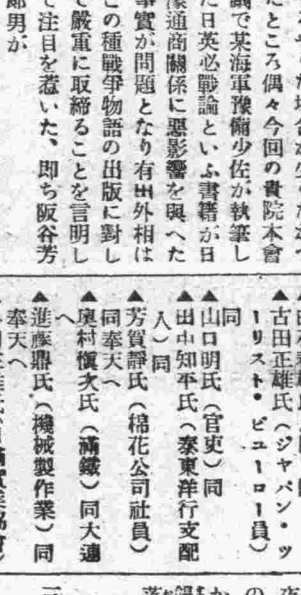 たところ偶々今回の貴院本會
議で某海軍豫備少佐が執筆し
た日英必戰論といふ書籍が日
濠通商關係に惡影響を與へた
事實が問題となり有田外相は
この種戰爭物語の出版に對し
て嚴重に取締ることを言明し
て注目を惹いた、即ち阪谷芳
郎男が
▲古田正雄氏(ジャパン・ツ
ーリスト・ビューロー員)
同
▲山口明氏(官吏)同
▲田中知平氏(泰東洋行支配
人)同
▲芳賀靜氏(棉花公司社員)
同奉天へ
▲奥村愼次氏(滿鐵)同大連
へ
▲進藤鼎氏(機械製作業)同
奉天へ